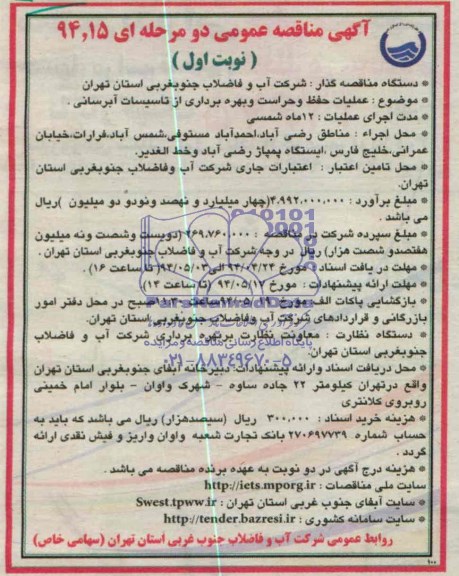 آگهی مناقصه عمومی دو مرحله ای ۹۴,۱۵
( نوبت اول )
* دستگاه مناقصه گذار : شرکت آب و فاضلاب جنوبغربی استان تهران
* موضوع : عملیات حفظ وحراست وبهره برداری از تاسیسات آبرسانی .
* مدت اجرای عملیات : ۱۲ماه شمسی
* محل اجراء : مناطق رضی آباد،احمدآباد مستوفی،شمس آباد،فرارات،خیابان
عمرانی،خلیج فارس ،ایستگاه پمپاژ رضی آباد وخط الغدیر.
* محل تامین اعتبار : اعتبارات جاری شرکت آب وفاضلاب جنوبغربی استان
تهران.
* مبلغ برآورد : ۴.۹۹۲.۰۰۰.۰۰۰(چهار میلیارد و نهصد ونودو دو میلیون )ریال
می باشد .
* مبلغ سپرده شرکت در مناقصه : ۲۶۹.۷۶۰.۰۰۰ (دویست وشصت ونه میلیون
هفتصدو شصت هزار) ریال در وجه شرکت آب و فاضلاب جنوبغربی استان تهران .
* مهلت در یافت اسناد : مورخ ۹۴/۰۴/۲۴ الی ۹۴/۰۵/۰۳( تا ساعت ۱۶) .
* مهلت ارائه پیشنهادات : مورخ ۹۴/۰۵/۱۷ (تا ساعت ۱۴)
* بازگشایی پاکات الف مورخ صبح در محل دفتر امور
بازرگانی و قراردادهای شرکت آب وفاضلاب جنوبغربی استان تهران.
* دستگاه نظارت : معاونت نظارت بر بهره برداری شرکت آب و فاضلاب
جنوبغربی استان تهران.
پایگاه اطلاع رسانی مناقصه و مزایده
۰۲۱-۸۸۳۴۹۶۷۰-۵
* محل دریافت اسناد وارائه پیشنهادات: دبیرخانه آبفای جنوبغربی استان تهران
واقع درتهران کیلومتر ۲۲ جاده ساوه - شهرک واوان - بلوار امام خمینی
روبروی کلانتری
* هزینه خرید اسناد : ۳۰۰.۰۰۰ ریال (سیصدهزار) ریال می باشد که باید به
حساب شماره ۲۷۰۶۹۷۷۳۹ بانک تجارت شعبه واوان واریز و فیش نقدی ارائه
گردد .
* هزینه درج آگهی در دو نوبت به عهده برنده مناقصه می باشد .
سایت ملی مناقصات : http://iets.mporg.ir
* سایت آبفای جنوب غربی استان تهران : Swest.tpww.ir
* سایت سامانه کشوری : http://tender.bazresi.ir
روابط عمومی شرکت آب و فاضلاب جنوب غربی استان تهران (سهامی خاص)
۱۰۰